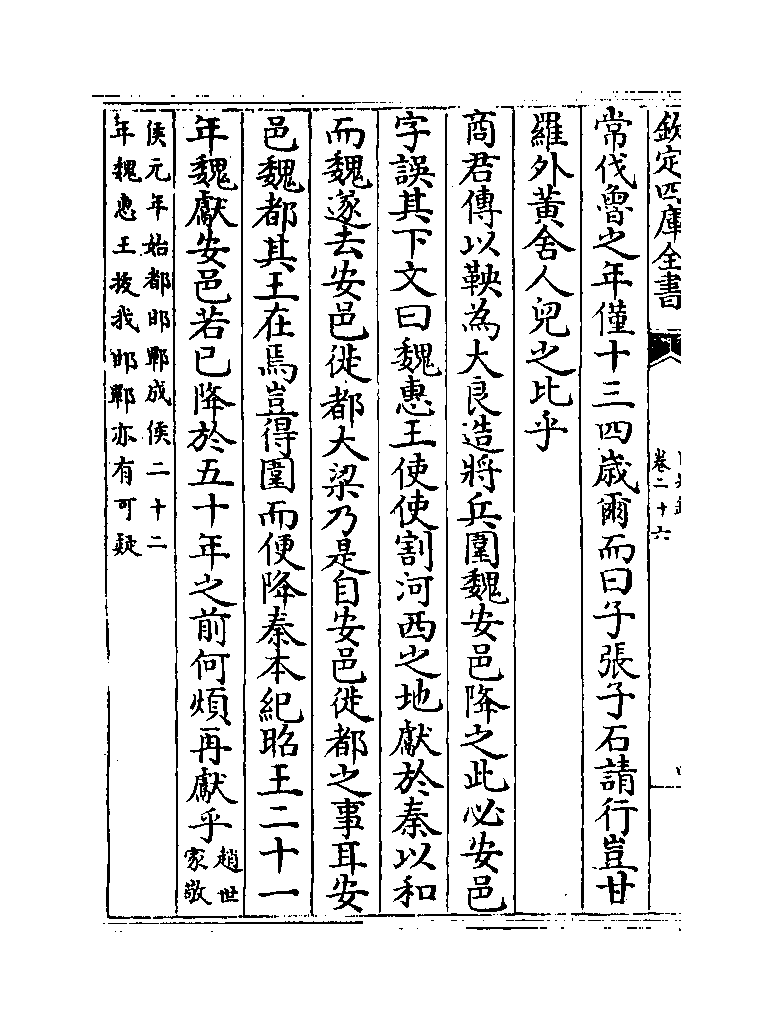 欽定四庫全書
卷二十六
常伐魯之年僅十三四歲爾而曰子張子石請行豈甘
羅外黃舍人兒之比乎
商君傳以鞅為大良造將兵圍魏安邑降之此必安邑
字誤其下文曰魏惠王使使割河西之地獻於秦以和
而魏遂去安邑徙都大梁乃是自安邑徙都之事耳安
邑魏都其王在焉豈得圍而便降秦本紀昭王二十一
年魏獻安邑若已降於五十年之前何煩再獻乎趙世家敬
侯元年始都邯鄲成侯二十二
年魏惠王拔我邯鄲亦有可疑